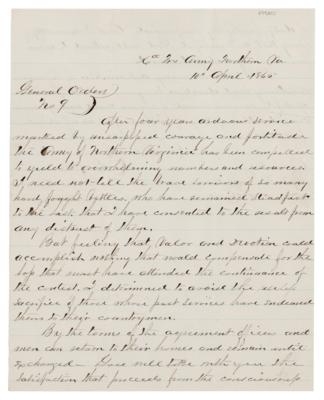 Hd Qrs Army Northern Va
10th April 1865
General Orders
No 9
After four years arduous service
marked by unsurpassed courage and fortitude
the Army of Northern Virginia has been compelled
to yield to overwhelming numbers and resources
I need not tell the brave survivors of so many
hard fought battles, who have remained steadfast
to the last that I have consented to the result from
any distrust of them.
But feeling that Valor and devotion could
accomplish nothing that would compensate for the
loss that must have attended the continuance of
the contest, I determined to avoid the useless
sacrifice of those whose past services have endeared
them to their countrymen.
By the terms of the agreement officers and
men can return to their homes and remain until
exchanged — You will take with you the
satisfaction that proceeds from the consciousness